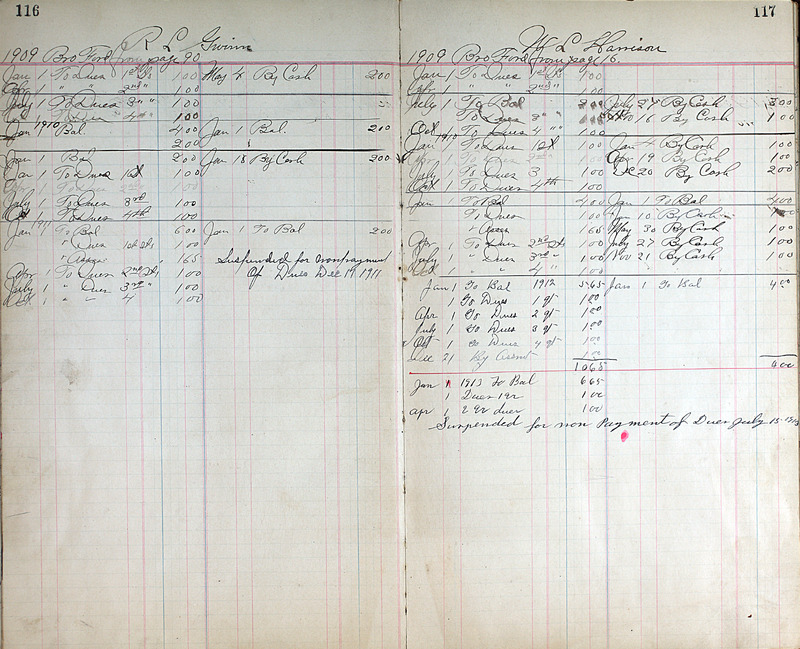 116
R L Gwinn
1909 Bro Ford from page 90
Jan 1 To Dues 1st qts 1 00 May 4 By Cash 2 00
Apr 1 " " 2nd " 1 00
July 1 To Dues 3rd " 1 00
1 To Dues 4th " 1 00
Jan 1910 Bal. 4 00 Jan 1 Bal. 2 00
2 00
Jan 1 Bal 2 00 Jan 18 By Cash 2 00
Jan 1 To Dues 1st 1 00
Apr 1 To Dues 2nd 1 00
July 1 To Dues 3rd 1 00
Oct 1 To Dues 4th 1 00
Jan 1911 To Bal 6 00 Jan 1 To Bal 2 00
" Dues 1st qts 1 00
" 1 65 Suspended for nonpayment
Apr 1 To Dues 2nd qts 1 00 Of Dues Dec 19 1911
July 1 " Dues 3rd " 1 00
Oct 1 " " 4 " 1 00
117
W L Harrison
1909 Bro Ford from page 16.
Jan 1 To Dues 1st qts 1 00
Apr 1 " " 2nd " 1 00
July 1 To Bal 2 00 July 27 By Cash 3 00
To Dues 3 " 16 By Cash 1 00
Oct 1 To Dues 4 " 1 00
Jan 1910 1 To Dues 1st 1 00 Jan 4 By Cash 1 00
Apr 1 To Dues 2nd 1 00 Apr 19 By Cash 1 00
July 1 To Dues 3 1 00 Dec 20 By Cash 2 00
Oct 1 To Dues 4th 1 00
Jan 1 To Bal 4 00 Jan 1 To Bal 4 00
To Dues 1 00 Jan 10 By Cash
" 1 65 May 30 By Cash 1 00
Apr 1 To Dues 2nd qts 1 00 July 27 By Cash 1 00
July 1 " Dues 3rd " 1 00 Nov 21 By Cash 1 00
Oct 1 " " 4 " 1 00
Jan 1 To Bal 1912 5 65 Jan 1 To Bal 4 00
1 To Dues 1 qt 1 00
Apr 1 To Dues 2 qt 1 00
July 1 To Dues 3 qt 1 00
Oct 1 To Dues 4 qt 1 00
Dec 21 By Assmt 1 00
10 65 4 00
Jan 1 1913 To Bal 6 65
1 Dues 1 qr 1 00
apr 1 2 qr dues 1 00
Suspended for non Payment of Dues July 15-1913